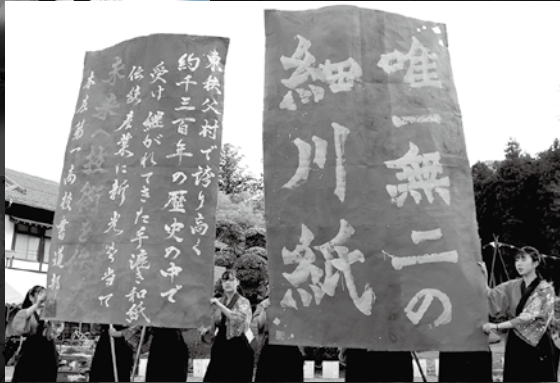 唯一無二の
細川紙
東秩父村で誇り高く
約千三百年の歴史の中で
受け継がれてきた手漉き和紙
伝統産業に新光を当て
未来へ技術を
本庄第一高校書道部